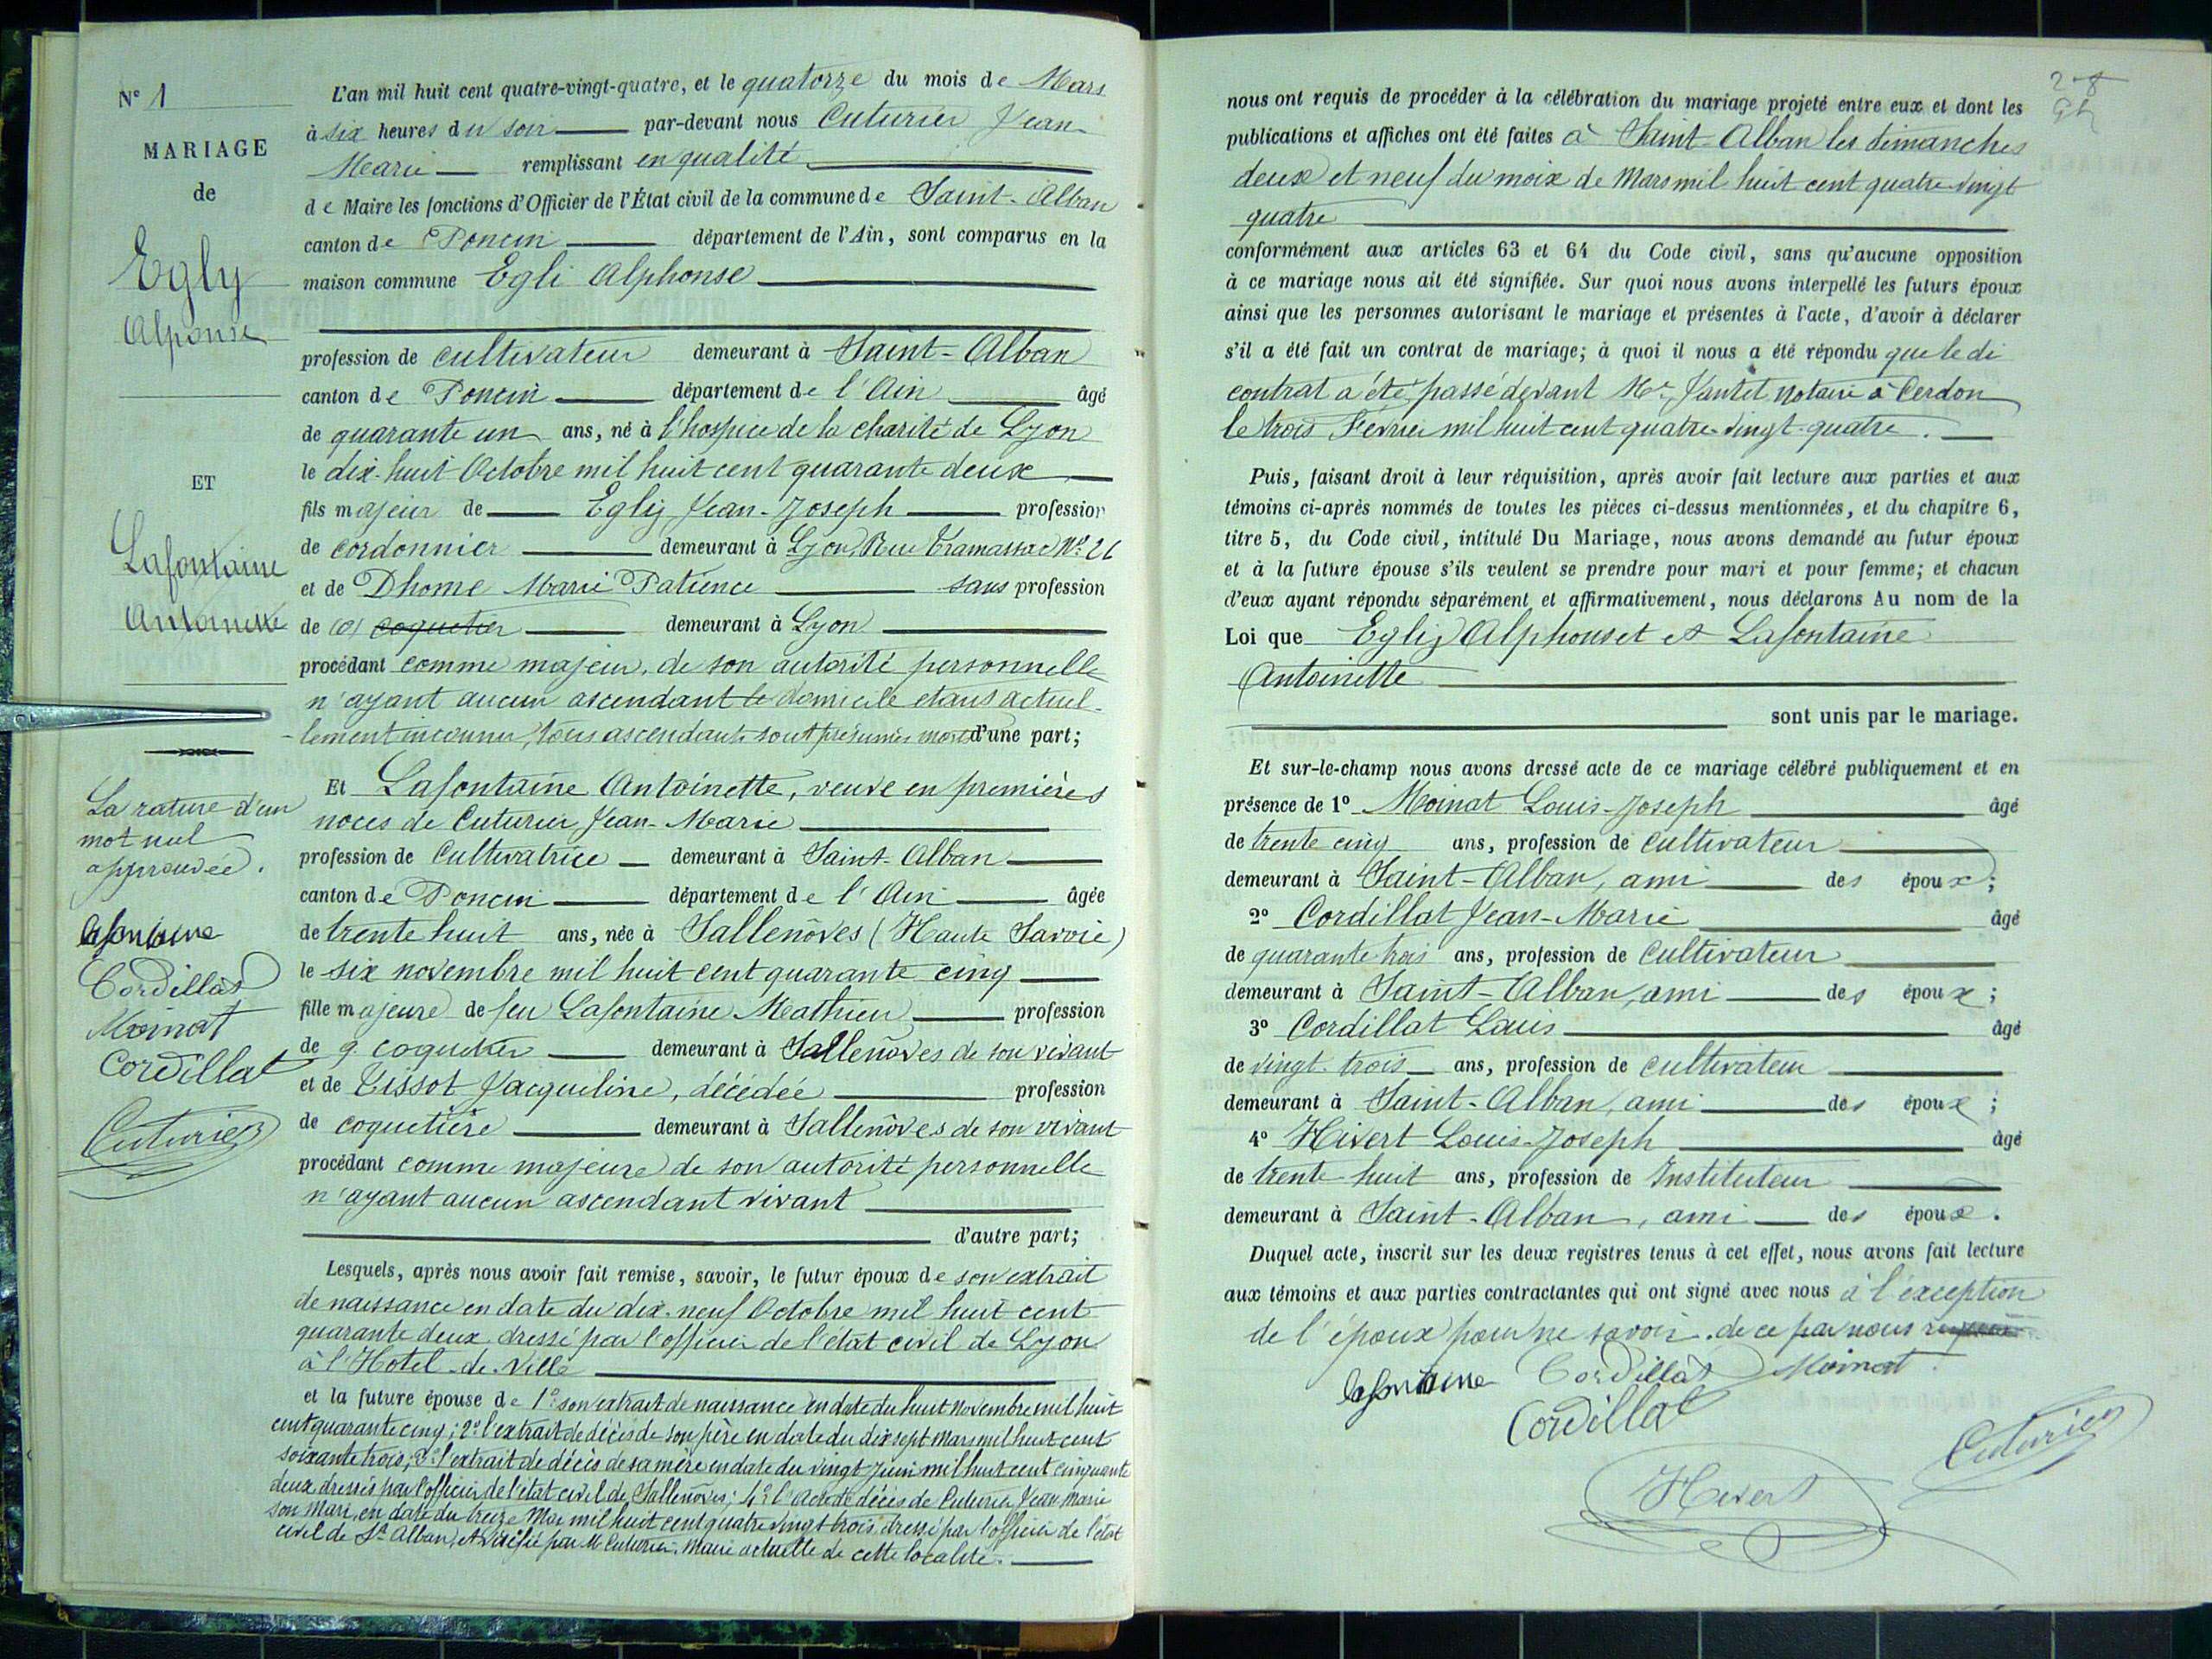 N° 1
MARIAGE
de
Egly
Alponse
ET
Lafontaine
Antoinette
La rature d'un
mot nul
approuvée.
Lafontaine
Cordillat
Moinat
Cordillat
Cuturier
L'an mil huit cent quatre-vingt-quatre, et le quatorze du mois de Mars
à six heures du soir par-devant nous Cuturier Jean-
Marie remplissant en qualité
de Maire les fonctions d'Officier de l'État civil de la commune de Saint-Alban
canton de Poncin département de l'Ain, sont comparus en la
maison commune Egli Alphonse
profession de cultivateur demeurant à Saint-Alban
canton de Poncin département de l'Ain âgé
de quarante un ans, né à l'hospice de la charité de Lyon
le dix-huit Octobre mil huit cent quarante deux
fils majeur de Egly Jean-Joseph profession
de cordonnier demeurant à Lyon, Rue Tramassac N°
et de Dhome Marie Patience sans profession
de coquetier demeurant à Lyon
procédant comme majeur, de son autorité personnelle
n'ayant aucun ascendant le domicile étant actuel-
lement inconnu, tous ascendants sont présumés morts d'une part;
Et Lafontaine Antoinette, veuve en premières
noces de Cuturier Jean-Marie
profession de Cultivatrice demeurant à Saint-Alban
canton de Poncin département de l'Ain âgée
de trente huit ans, née à Sallenôves (Haute Savoie)
le six novembre mil huit cent quarante cinq
fille majeure de feu Lafontaine Mathieu profession
de coquetier demeurant à Sallenôves de son vivant
et de Tissot Jacqueline, décédée profession
de coquetière demeurant à Sallenôves de son vivant
procédant comme majeure de son autorité personnelle
n'ayant aucun ascendant vivant
d'autre part;
Lesquels, après nous avoir fait remise, savoir, le futur époux de son extrait
de naissance en date du dix-neuf Octobre mil huit cent
quarante deux dressé par l'officier de l'état civil de Lyon
à l'Hotel-de-Ville
et la future épouse de 1° son extrait de naissance en date du huit novembre mil huit
cent quarante cinq; 2° l'extrait de décès de son père en date du dix sept Mars mil huit cent
soixante trois; 3° l'extrait de décès de sa mère en date du vingt Juin mil huit cent cinquante
deux dressés par l'officier de l'état civil de Sallenôves; 4° l'acte de décès de Cuturier Jean Marie
son mari, en date du treize Mai mil huit cent quatre vingt trois dressé par l'officier de l'état
civil de St Alban, et vérifié par M Cuturier, Maire actuelle de cette localité.
nous ont requis de procéder à la célébration du mariage projeté entre eux et dont les
publications et affiches ont été faites à Saint-Alban les dimanches
deux et neuf du mois de Mars mil huit cent quatre vingt
quatre
conformément aux articles 63 et 64 du Code civil, sans qu'aucune opposition
à ce mariage nous ait été signifiée. Sur quoi nous avons interpellé les futurs époux
ainsi que les personnes autorisant le mariage et présentes à l'acte, d'avoir à déclarer
s'il a été fait un contrat de mariage; à quoi il nous a été répondu que le di
contrat a été passé devant Me Jantet, Notaire à Cerdon
le trois Février mil huit cent quatre-vingt-quatre.
Puis, faisant droit à leur réquisition, après avoir fait lecture aux parties et aux
témoins ci-après nommés de toutes les pièces ci-dessus mentionnées, et du chapitre 6,
titre 5, du Code civil, intitulé Du Mariage, nous avons demandé au futur époux
et à la future épouse s'ils veulent se prendre pour mari et pour femme; et chacun
d'eux ayant répondu séparément et affirmativement, nous déclarons Au nom de la
Loi que Egly Alphonset et Lafontaine
Antoinette
sont unis par le mariage.
Et sur-le-champ nous avons dressé acte de ce mariage célébré publiquement et en
présence de 1° Moinat Louis-Joseph âgé
de trente cinq ans, profession de Cultivateur
demeurant à Saint-Alban, ami des époux;
2° Cordillat Jean-Marie âgé
de quarante trois ans, profession de Cultivateur
demeurant à Saint-Alban, ami des époux;
3° Cordillat Louis âgé
de vingt-trois ans, profession de Cultivateur
demeurant à Saint-Alban, ami des époux;
4° Hivert Louis-Joseph âgé
de trente-huit ans, profession de Instituteur
demeurant à Saint-Alban, ami des époux.
Duquel acte, inscrit sur les deux registres tenus à cet effet, nous avons fait lecture
aux témoins et aux parties contractantes qui ont signé avec nous à l'exception
de l'époux pour ne savoir. de ce par nous
Lafontaine Cordillat Moinat
Cordillat
Cuturier
Hivert